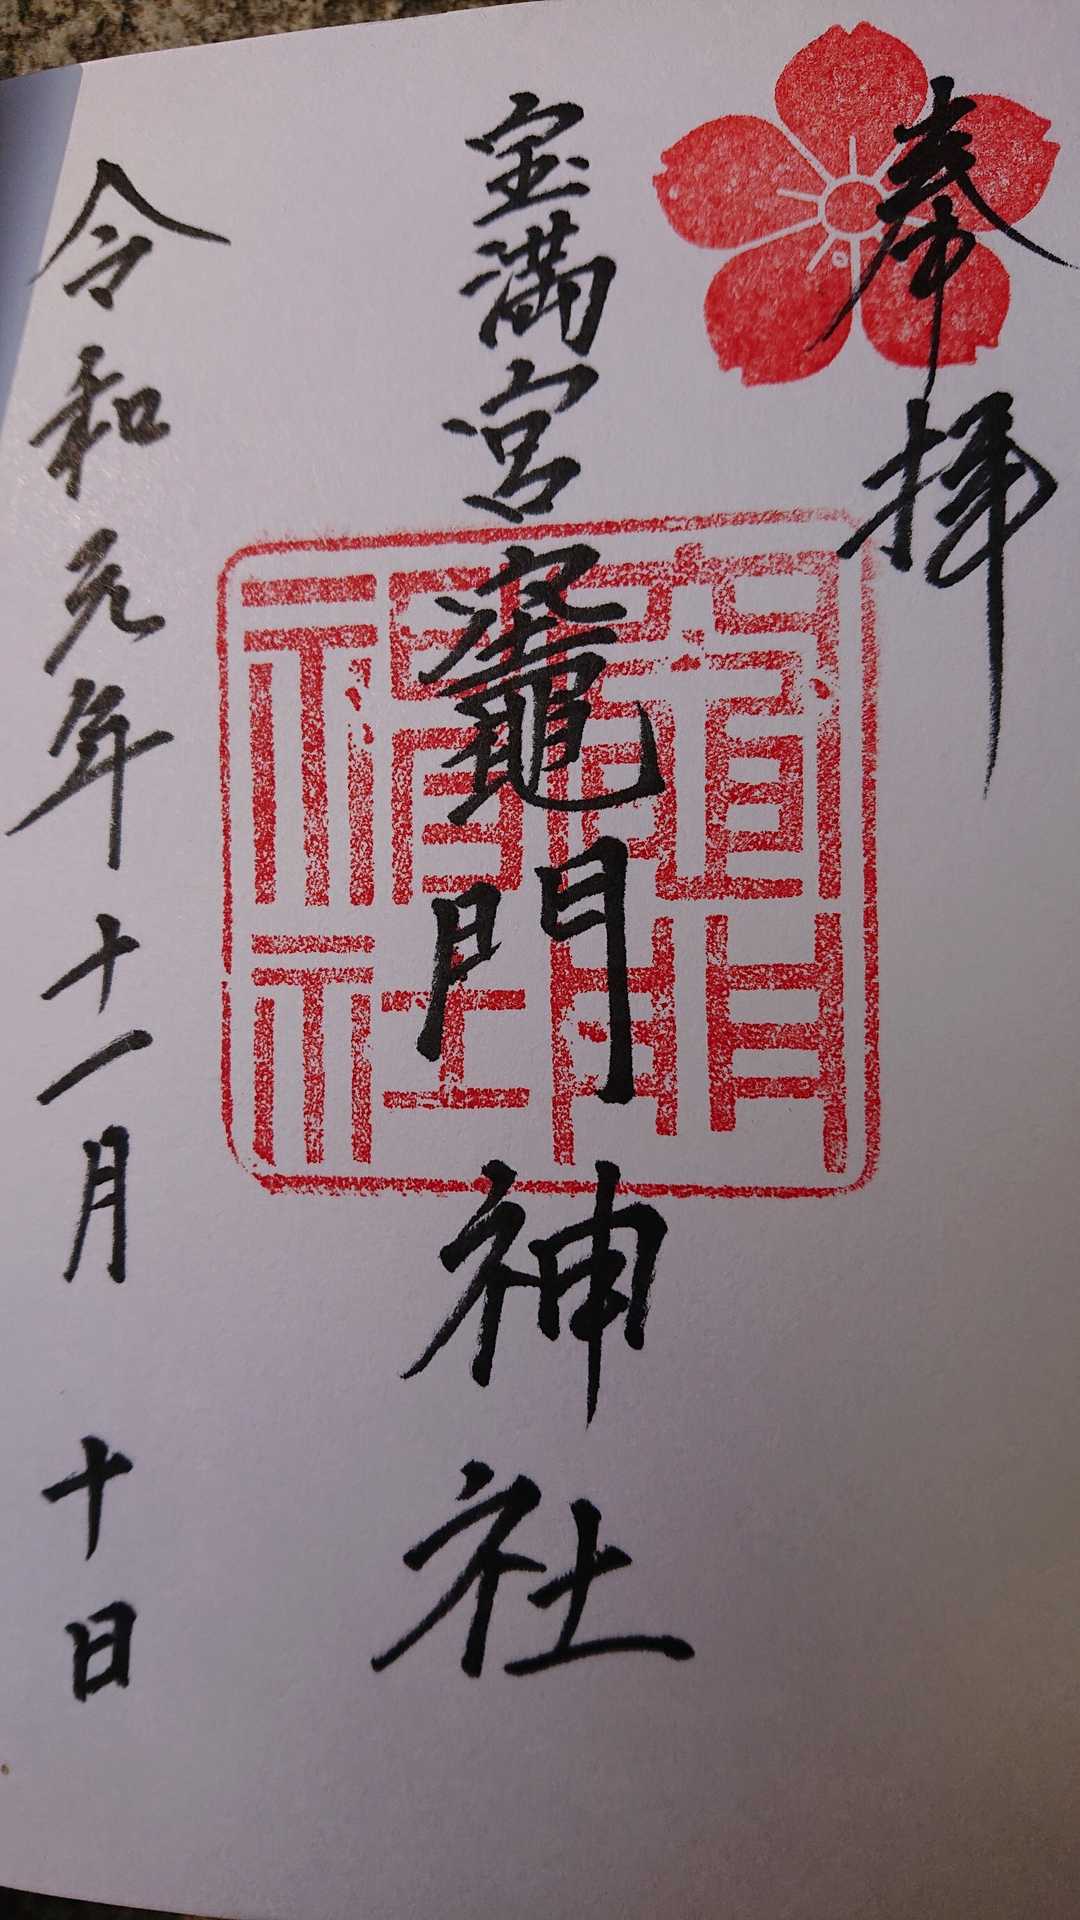 奉拝
宝満宮竈門神社
令和元年十一月十日